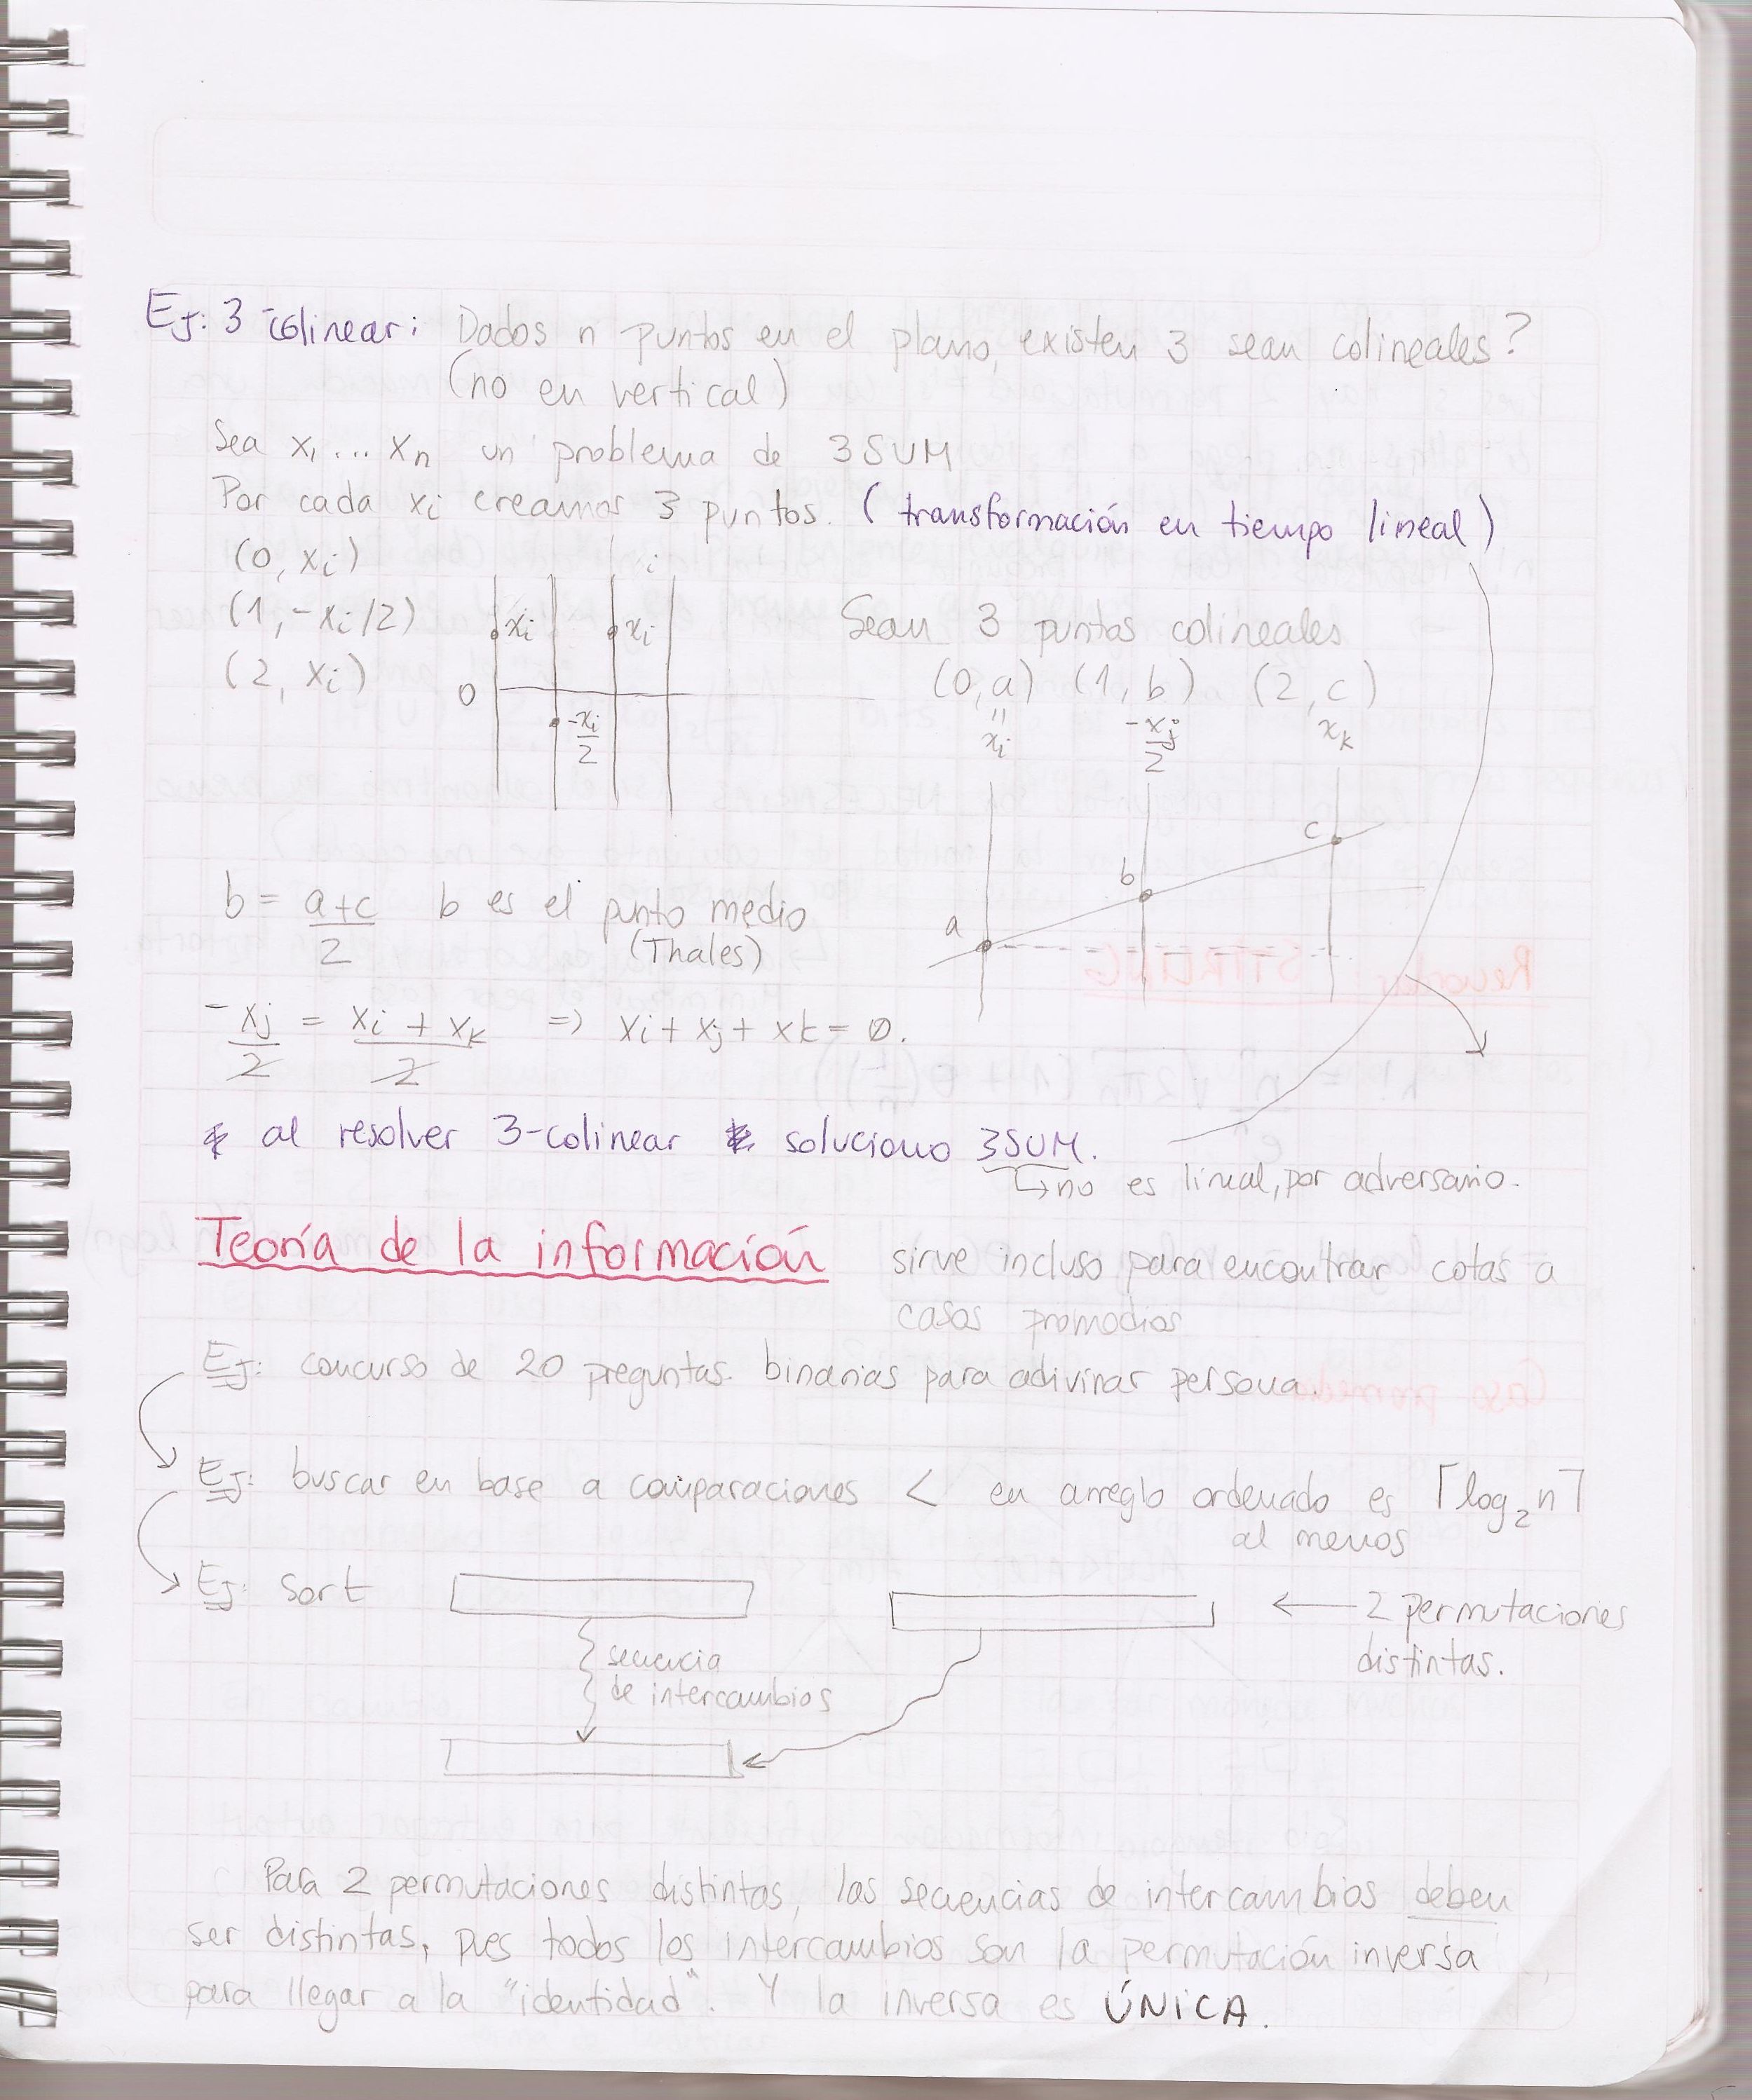 Ej: 3 colinear: Dados n puntos en el plano, existen 3 sean colineales?
(no en vertical)
Sea x₁ ... xₙ un problema de 3SUM
Por cada xᵢ creamos 3 puntos. (transformación en tiempo lineal)
(0, xᵢ)
(1, -xᵢ/2)
(2, xᵢ)
xᵢ xᵢ
0
-xᵢ/2
Sean 3 puntos colineales
(0,a) (1,b) (2,c)
" 
xᵢ -xⱼ/2 xₖ
a b c
b = (a+c)/2 b es el punto medio
(Thales)
-xⱼ/2 = (xᵢ + xₖ)/2 => xᵢ + xⱼ + xk = 0.
* al resolver 3-colinear soluciono 3SUM.
↳ no es lineal, por adversario.
Teoría de la información sirve incluso para encontrar cotas a
casos promodios
Ej: concurso de 20 preguntas. binarias para adivinar persona.
Ej: buscar en base a comparaciones < en arreglo ordenado es ⌈log₂n⌉
al menos
Ej: sort
← 2 permutaciones
distintas.
secuencia
de intercambios
Para 2 permutaciones distintas, las secuencias de intercambios deben
ser distintas, pues todos los intercambios son la permutación inversa
para llegar a la "identidad". Y la inversa es ÚNICA.